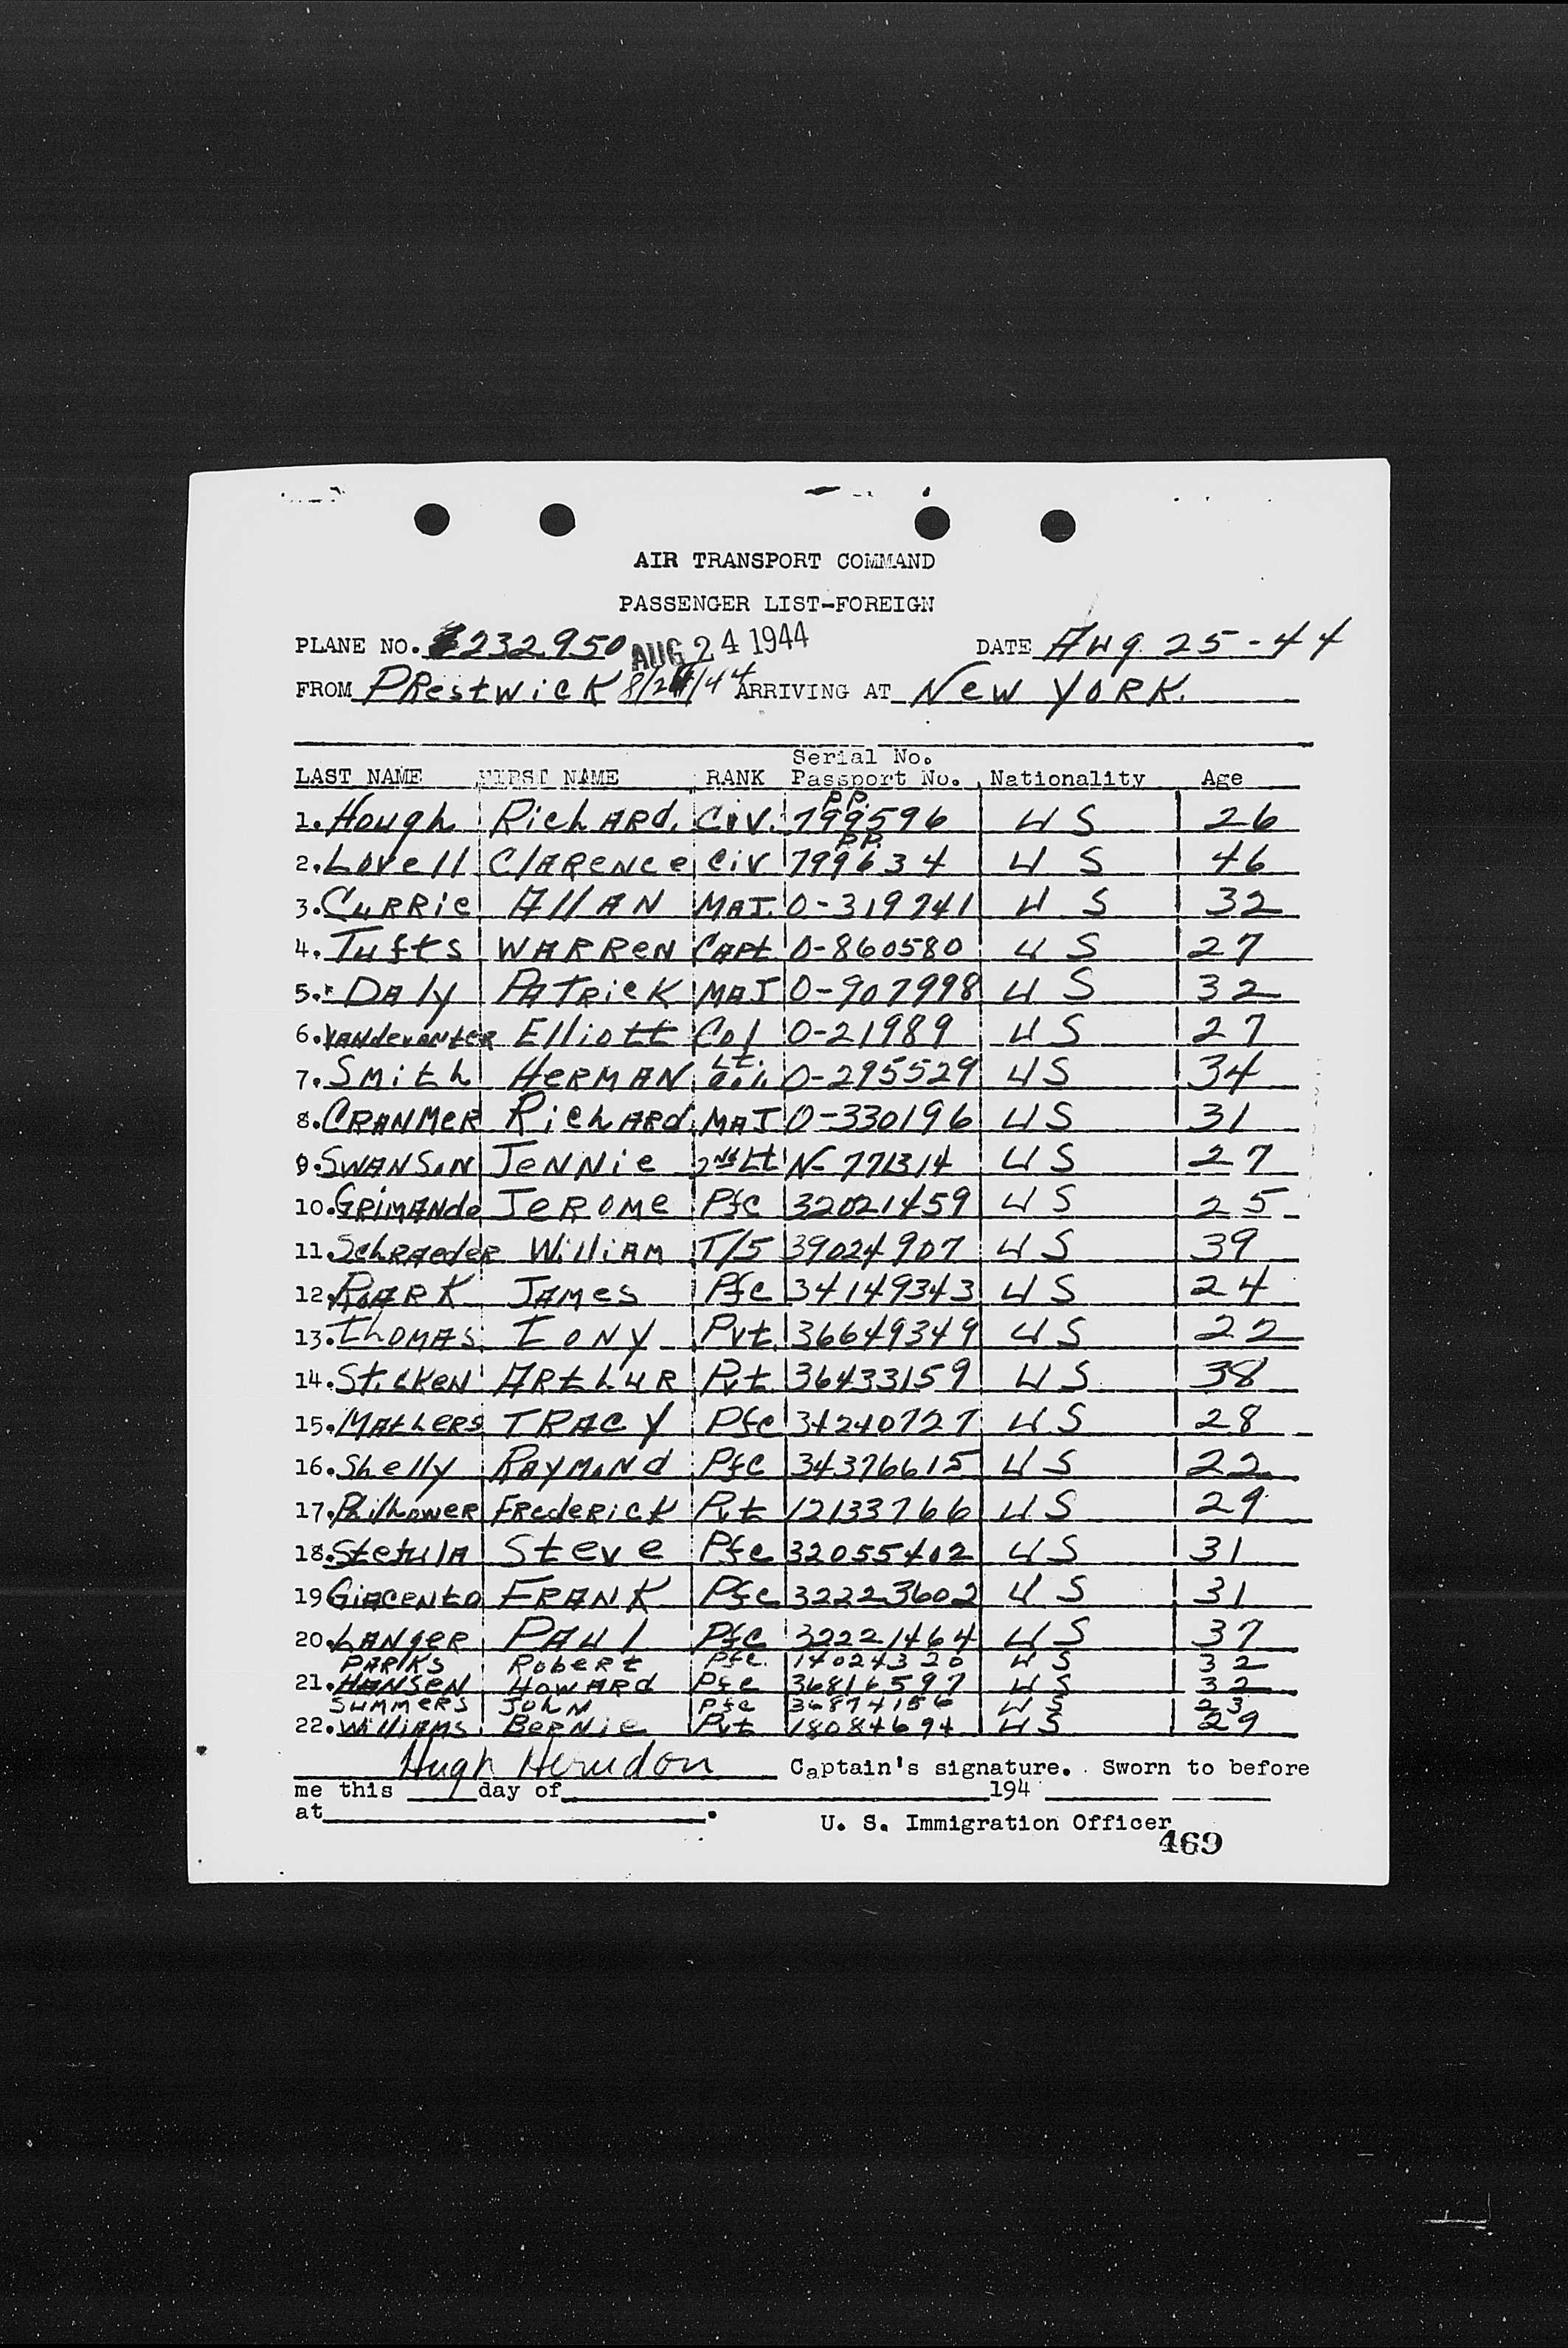 AIR TRANSPORT COMMAND
PASSENGER LIST-FOREIGN
PLANE NO. 232950 AUG 24 1944 DATE Aug 25-44
FROM PRestwicK 8/24/44 ARRIVING AT New YORK.
Serial No.
LAST NAME FIRST NAME RANK Passport No. Nationality Age
P.P.
1. Hough RichARD. Civ. 799596 US 26
P.P.
2. Lovell ClARence Civ 799634 US 46
3. CuRRie AllAN MAJ. O-319741 US 32
4. Tufts WARRen CAPt O-860580 US 27
5. DAly PATRicK MAJ O-907998 US 32
6. VANdeventeR Elliott Col O-21989 US 27
7. Smith HeRMAN Lt. Col. O-295529 US 34
8. CRANMeR RichARd MAJ O-330196 US 31
9. SWANSoN JeNNie 2nd Lt N-771314 US 27
10. GRIMANdo JeROMe Pfc 32021459 US 25
11. SchRaedeR WilliAM T/5 39024907 US 39
12. RoARK JAMes Pfc 34149343 US 24
13. ThoMAS TONY Pvt. 36649349 US 22
14. SticKeN ARthuR Pvt 36433159 US 38
15. MAtheRS TRACY Pfc 34240727 US 28
16. Shelly RAYMoNd Pfc 34376615 US 22
17. PhilhoweR FRedeRicK Pvt 12133766 US 29
18. StetulA Steve Pfc 32055402 US 31
19 GiACeNto FRANK Pfc 32223602 US 31
20. LANgeR PAul Pfc 32221464 US 37
PARKS RobeRt Pfc. 14024320 US 32
21. HANSeN HowARd Pfc 36816597 US 32
SuMMeRS JohN Pfc 36874156 US 23
22. WilliAMS BeRNie Pvt 18084694 US 29
Hugh Herndon Captain's signature. Sworn to before
me this day of 194
at .
U. S. Immigration Officer
469